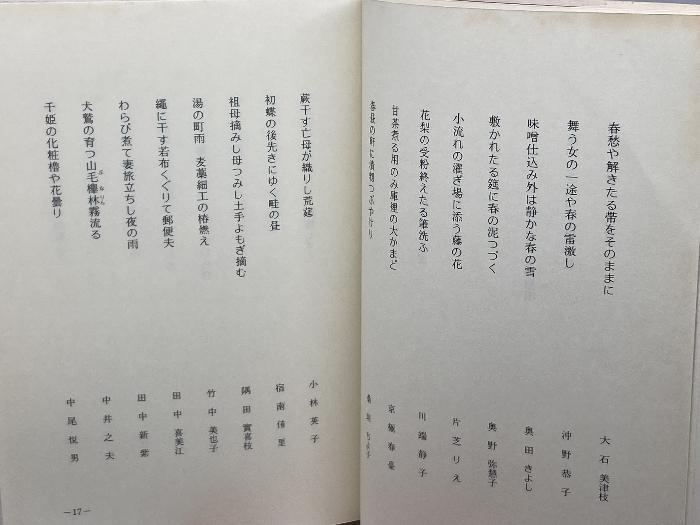 春愁や解きたる帯をそのままに
大石美津枝
舞う女の一途や春の雷激し
沖野恭子
味噌仕込み外は静かな春の雪
奥田きよし
敷かれたる筵に春の泥つづく
奥野弥慧子
小流れの濯ぎ場に添う藤の花
片芝りえ
花梨の受粉終えたる筆洗ふ
川端静子
甘茶煮る用のみ庵裡の大かまど
京極春
蕨干す亡母が織りし荒筵
小林英子
初蝶の後先きにゆく畦の昼
宿南佳里
祖母摘みし母つみし土手よもぎ摘む
隅田實喜枝
湯の町雨 麦藁細工の椿燃え
竹中美也子
縄に干す若布くぐりて郵便夫
田中喜美江
わらび煮て妻旅立ちし夜の雨
田中新
犬鷲の育つ山毛欅林霧流る
中井之夫
千姫の化粧櫓や花曇り
中尾悦男
―17―